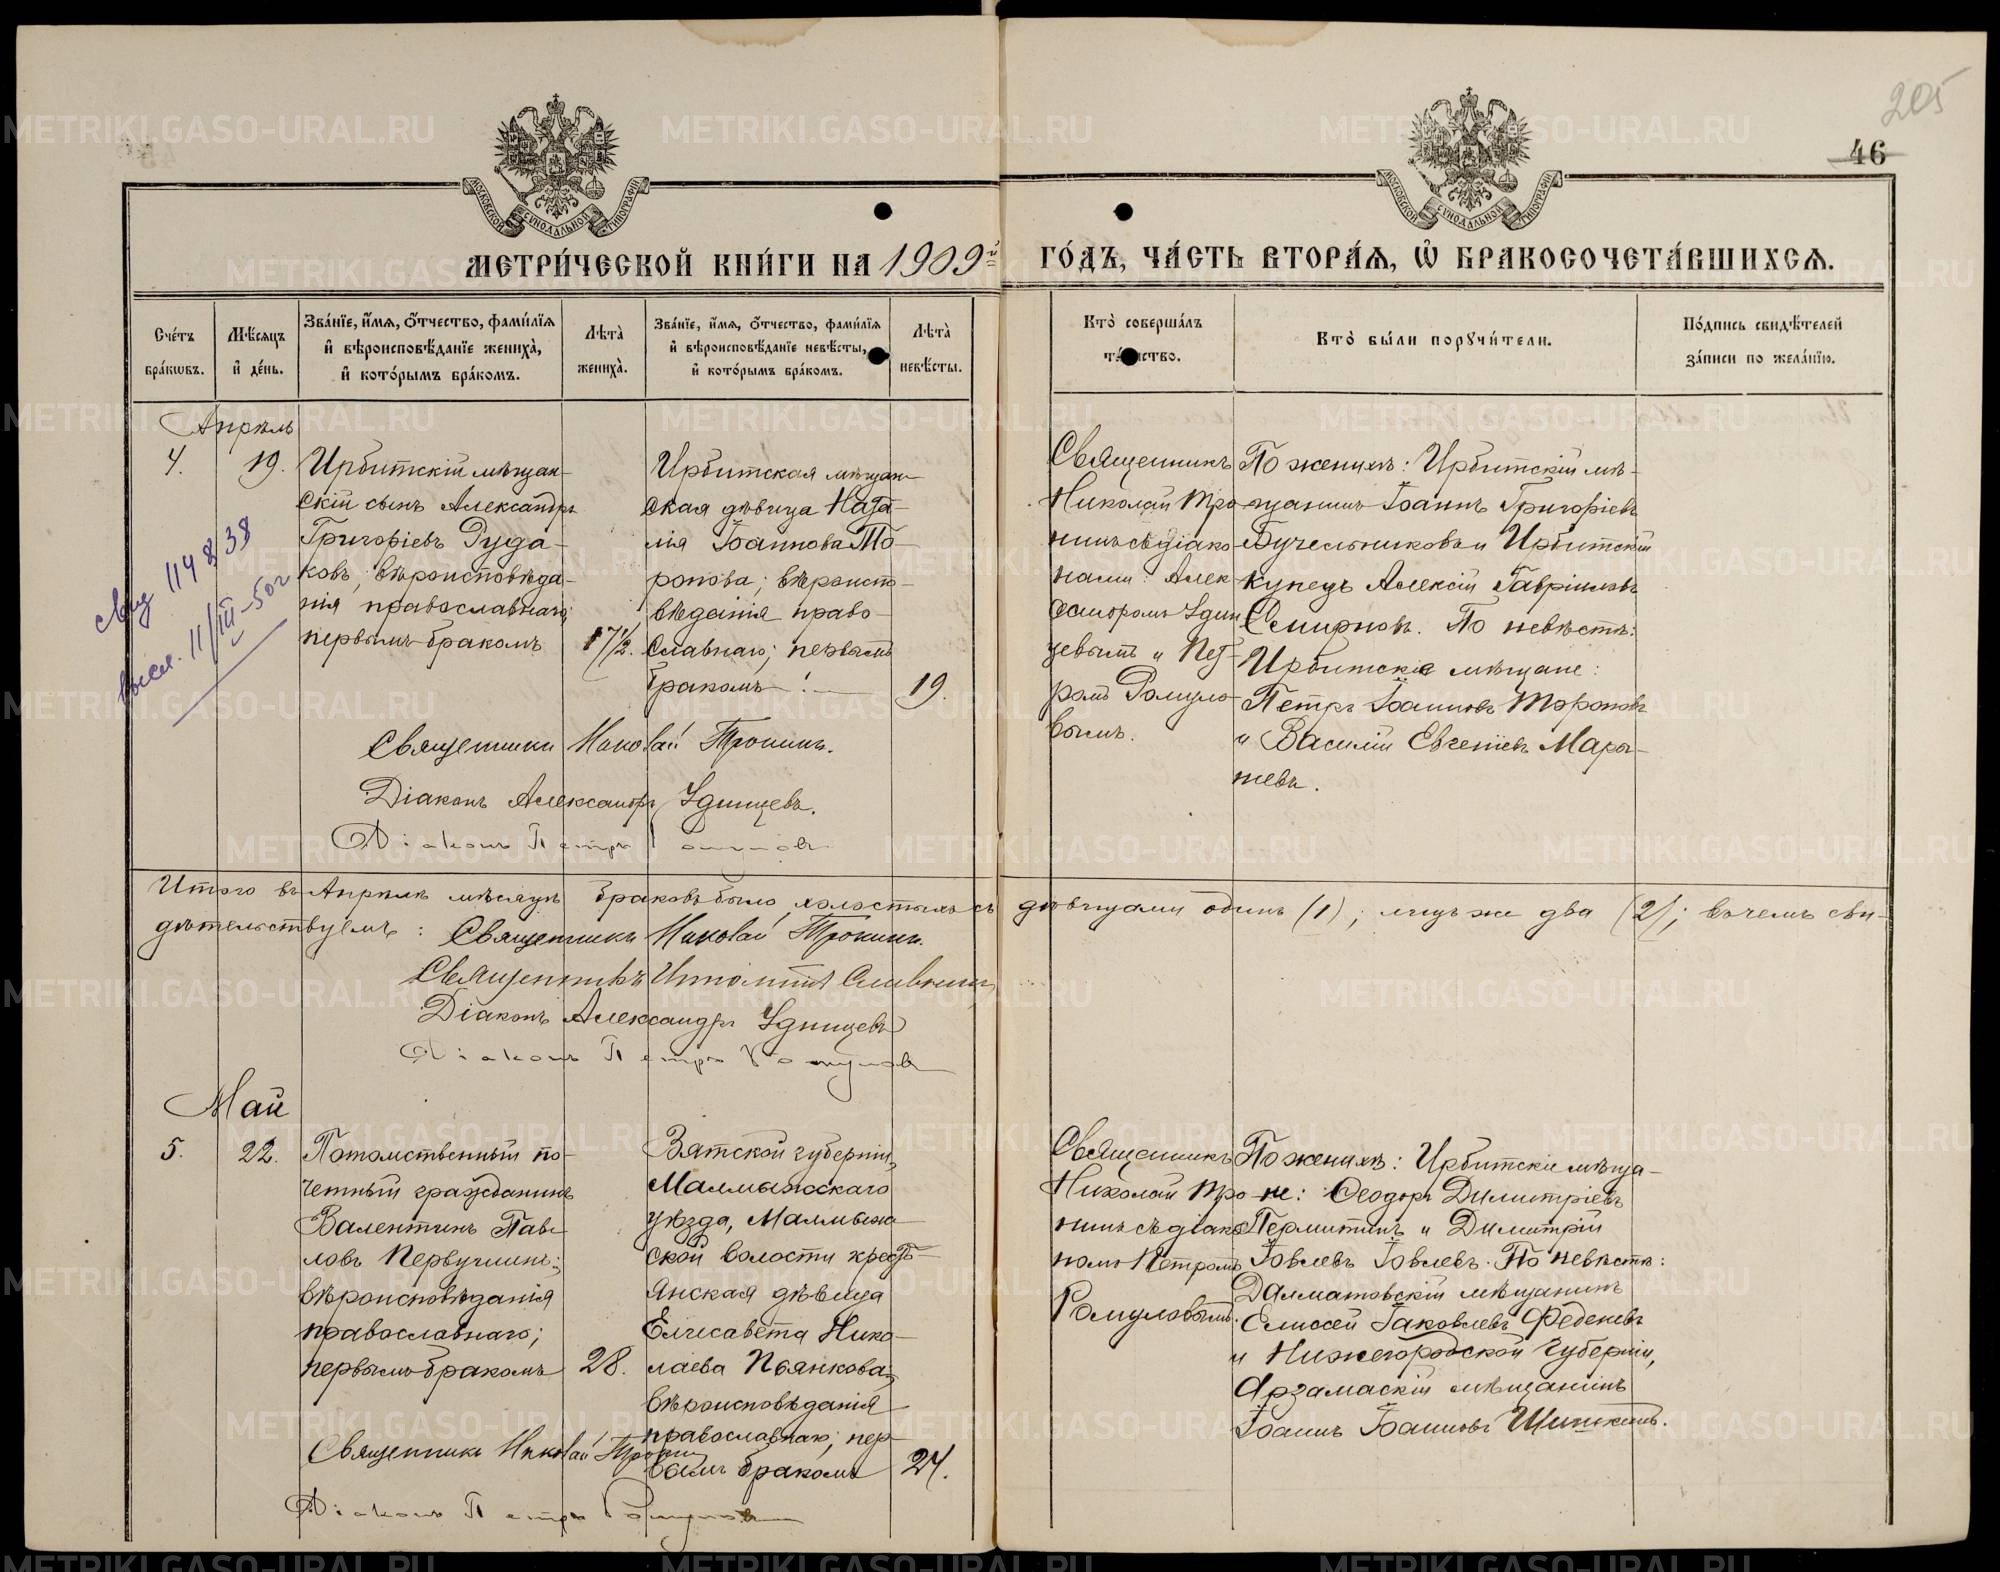 205
46
МОСКОВСКОЙ СѴНОДАЛЬНОЙ ТИПОГРАФІИ
МОСКОВСКОЙ СѴНОДАЛЬНОЙ ТИПОГРАФІИ
МЕТРИ́ЧЕСКОЙ КНИ́ГИ НА 1909й ГО́ДЪ, ЧА́СТЬ ВТОРА́Ѧ, Ѡ҆ БРАКОСОЧЕТА́ВШИХСѦ.
Сче́тъ бра́кѡвъ.
Мѣ́сѧцъ и҆ де́нь.
Зва́нїе, и҆́мѧ, ѻ҆́тчество, фами́лїѧ и҆ вѣроисповѣ́данїе жениха̀, и҆ кото́рымъ бра́комъ.
Лѣта̀ жениха̀.
Зва́нїе, и҆́мѧ, ѻ҆́тчество, фами́лїѧ и҆ вѣроисповѣ́данїе невѣ́сты, и҆ кото́рымъ бра́комъ.
Лѣта̀ невѣ́сты.
Кто̀ соверша́лъ та́инство.
Кто̀ бы́ли порꙋчи́тели.
По́дпись свидѣ́телей за́писи по жела́нїю.
Апрѣль
4.
19.
Ирбитскій мѣщан-
скій сынъ Александръ
Григоріевъ Руда-
ковъ; вѣроисповѣда-
нія православнаго;
первымъ бракомъ
17½.
Ирбитская мѣщан-
ская дѣвица Ната-
лія Іоаннова То-
ропова; вѣроиспо-
вѣданія право-
славнаго; первымъ
бракомъ.
19.
Священникъ
Николай Тро-
нинъ съ діако-
нами: Алек-
сандромъ Удин-
цевымъ и Пет-
ромъ Ромуло-
вымъ.
По женихѣ: Ирбитскій мѣ-
щанинъ Іоаннъ Григоріевъ
Бучельниковъ и Ирбитскій
купецъ Алексій Гавріиловъ
Смирновъ. По невѣстѣ:
Ирбитскіе мѣщане:
Петръ Іоанновъ Тороповъ
и Василій Евгеніевъ Мары-
чевъ.
свид 114838
высл. 11/III-50г
Священникъ Николай Тронинъ.
Діаконъ Александръ Удинцевъ.
Діаконъ Петръ Ромуловъ
Итого въ Апрѣлѣ мѣсяцѣ браковъ было, холостыхъ съ дѣвицами одинъ (1); лицъ же два (2); въ чемъ сви-
дѣтельствуемъ: Священникъ Николай Тронинъ.
Священникъ Славнинъ
Діаконъ Александръ Удинцевъ
Діаконъ Петръ Ромуловъ
Май
5.
22.
Потомственный по-
четный гражданинъ
Валентинъ Пав-
ловъ Первушинъ;
вѣроисповѣданія
православнаго;
первымъ бракомъ
28.
Вятской губерніи,
Малмыжскаго
уѣзда, Малмыж-
ской волости крестъ-
янская дѣвица
Елисавета Нико-
лаева Пьянкова;
вѣроисповѣданія
православнаго; пер-
вымъ бракомъ
24.
Священникъ
Николай Тро-
нинъ съ діако-
номъ Петромъ
Ромуловымъ.
По женихѣ: Ирбитскіе мѣща-
не: Ѳеодоръ Димитріевъ
Пермитинъ и Димитрій
Іовлевъ Іовлевъ. По невѣстѣ:
Далматовскій мѣщанинъ
Елисей Іаковлевъ Феденевъ
и Нижегородской губерніи,
Арзамаскій мѣщанинъ
Іоаннъ Іоанновъ Шипкинъ.
Священникъ Николай Тронинъ
Діаконъ Петръ Ромуловъ
METRIKI.GASO-URAL.RU